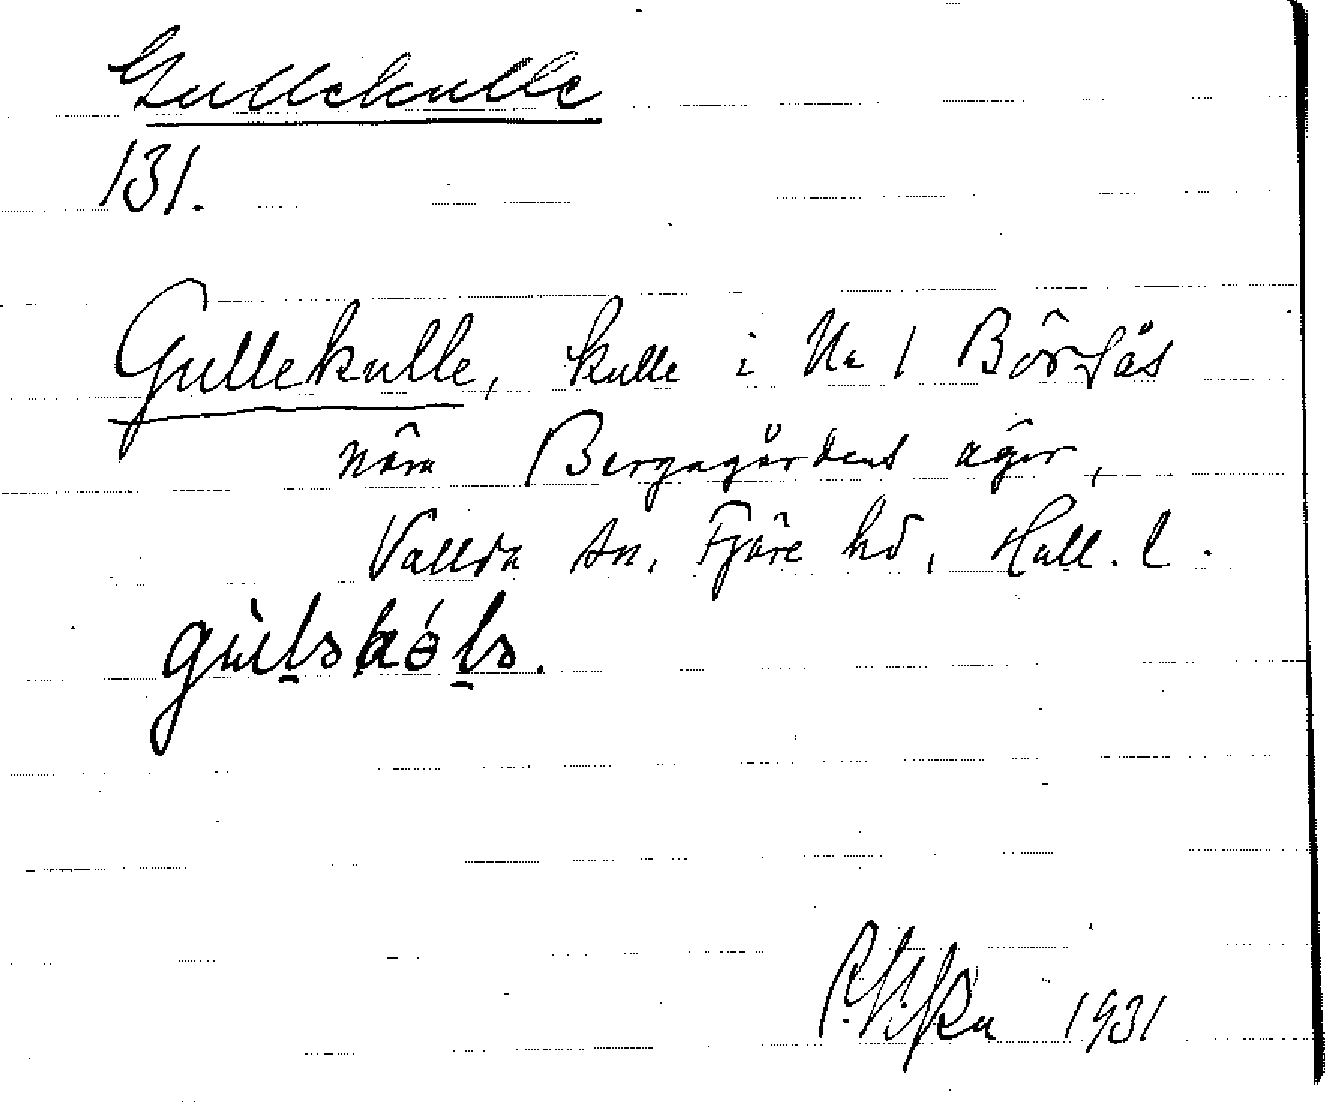 Gullekulle
131.
Gullekulle, kulle i No 1 Börsås
nära Bergagårdens ägor,
Vallda sn, Fjäre hd, Hall. l.
1931